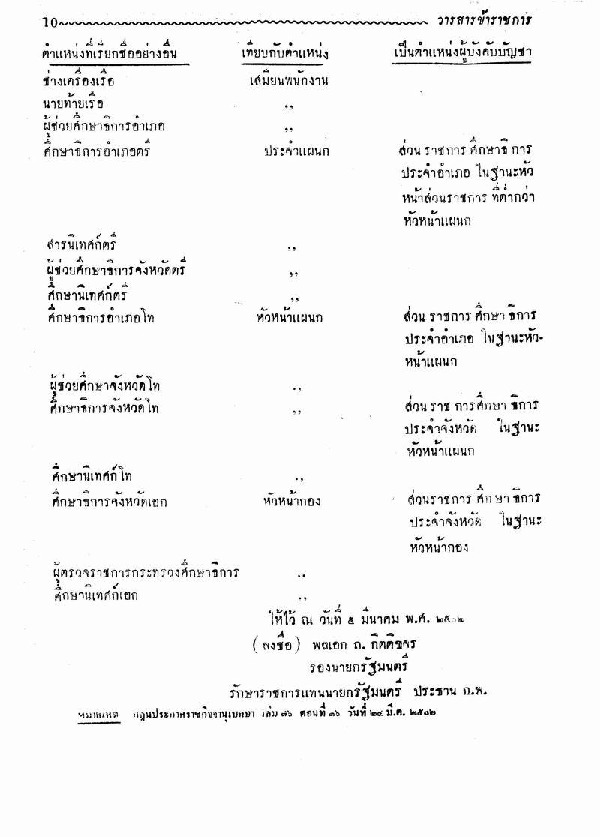 10 วารสารข้าราชการ
ตำแหน่งที่เรียกชื่ออย่างอื่น เทียบกับตำแหน่ง เป็นตำแหน่งผู้บังคับบัญชา
ช่างเครื่องเรือ เสมียนพนักงาน
นายท้ายเรือ ,,
ผู้ช่วยศึกษาธิการอำเภอ ,,
ศึกษาธิการอำเภอตรี ประจำแผนก ส่วนราชการศึกษาธิการ
ประจำอำเภอ ในฐานะหัว
หน้าส่วนราชการ ที่ต่ำกว่า
หัวหน้าแผนก
สารนิเทศก์ตรี ,,
ผู้ช่วยศึกษาธิการจังหวัดตรี ,,
ศึกษานิเทศก์ตรี ,,
ศึกษาธิการอำเภอโท หัวหน้าแผนก ส่วนราชการศึกษาธิการ
ประจำอำเภอ ในฐานะหัว-
หน้าแผนก
ผู้ช่วยศึกษาจังหวัดโท ,,
ศึกษาธิการจังหวัดโท ,, ส่วนราชการศึกษาธิการ
ประจำจังหวัด ในฐานะ
หัวหน้าแผนก
ศึกษานิเทศก์โท ,,
ศึกษาธิการจังหวัดเอก หัวหน้ากอง ส่วนราชการศึกษาธิการ
ประจำจังหวัด ในฐานะ
หัวหน้ากอง
ผู้ตรวจราชการกระทรวงศึกษาธิการ ,,
ศึกษานิเทศก์เอก ,,
ให้ไว้ ณ วันที่ ๕ มีนาคม พ.ศ. ๒๕๐๒
(ลงชื่อ) พลเอก ถ. กิตติขจร
รองนายกรัฐมนตรี
รักษาราชการแทนนายกรัฐมนตรี ประธาน ก.พ.
หมายเหตุ กฎนประกาศราชกิจจานุเบกษา เล่ม ๗๖ ตอนที่ ๓๖ วันที่ ๒๔ มี.ค. ๒๕๐๒